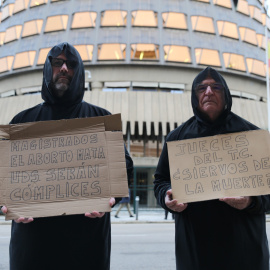 MAGISTRADOS
EL ABORTO MATA
UDS SERÁN
CÓMPLICES
JUECES
DEL T.C.
¿SIERVOS DE
LA MUERTE?